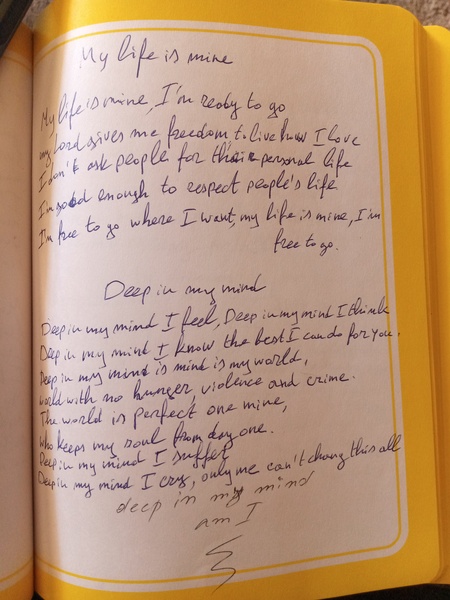 My life is mine
My life is mine, I'm ready to go
my lord gives me freedom to live how I love
I don't ask people for their personal life
I'm good enough to respect people's life
I'm free to go where I want, my life is mine, I'm
free to go.
Deep in my mind
Deep in my mind I feel, Deep in my mind I think
Deep in my mind I know the best I can do for you.
Deep in my mind is mind is my world,
world with no hunger, violence and crime.
The world is perfect one mine,
who keeps my soul from day one.
Deep in my mind I suffer
Deep in my mind I cry, only me can't chang this all
deep in my mind
am I